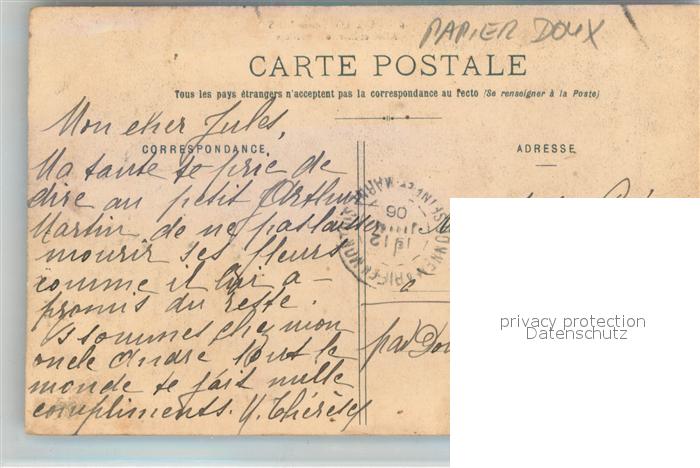 PAPIER DOUX
CARTE POSTALE
Tous les pays étrangers n'acceptent pas la correspondance au recto (Se renseigner à la Poste)
Mon cher Jules,
CORRESPONDANCE
ADRESSE
Ma tante te prie de
dire au petit Arthur
Martin de ne pas laisser
mourir ses fleurs
comme il lui a
promis du reste.
sommes chez mon
oncle André tout le
monde te fait mille
compliments. M. Thérèse
06
12
par
privacy protection
Datenschutz